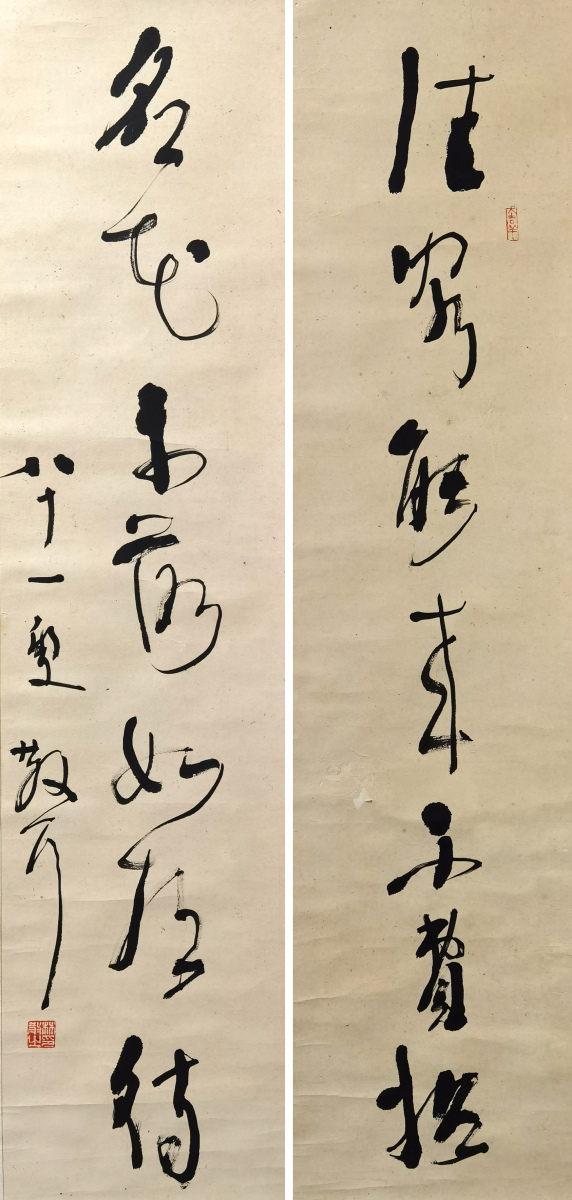 佳客能来不費招
大吉羊
名花未落如相待
八十一叟 散耳